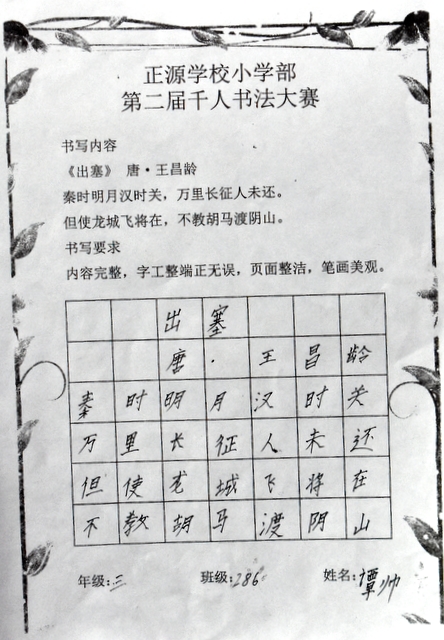 正源学校小学部
第二届千人书法大赛
书写内容
《出塞》 唐·王昌龄
秦时明月汉时关，万里长征人未还。
但使龙城飞将在，不教胡马渡阴山。
书写要求
内容完整，字工整端正无误，页面整洁，笔画美观。
出塞
唐·王昌龄
秦时明月汉时关
万里长征人未还
但使龙城飞将在
不教胡马渡阴山
年级:三 班级:286 姓名:谭帅